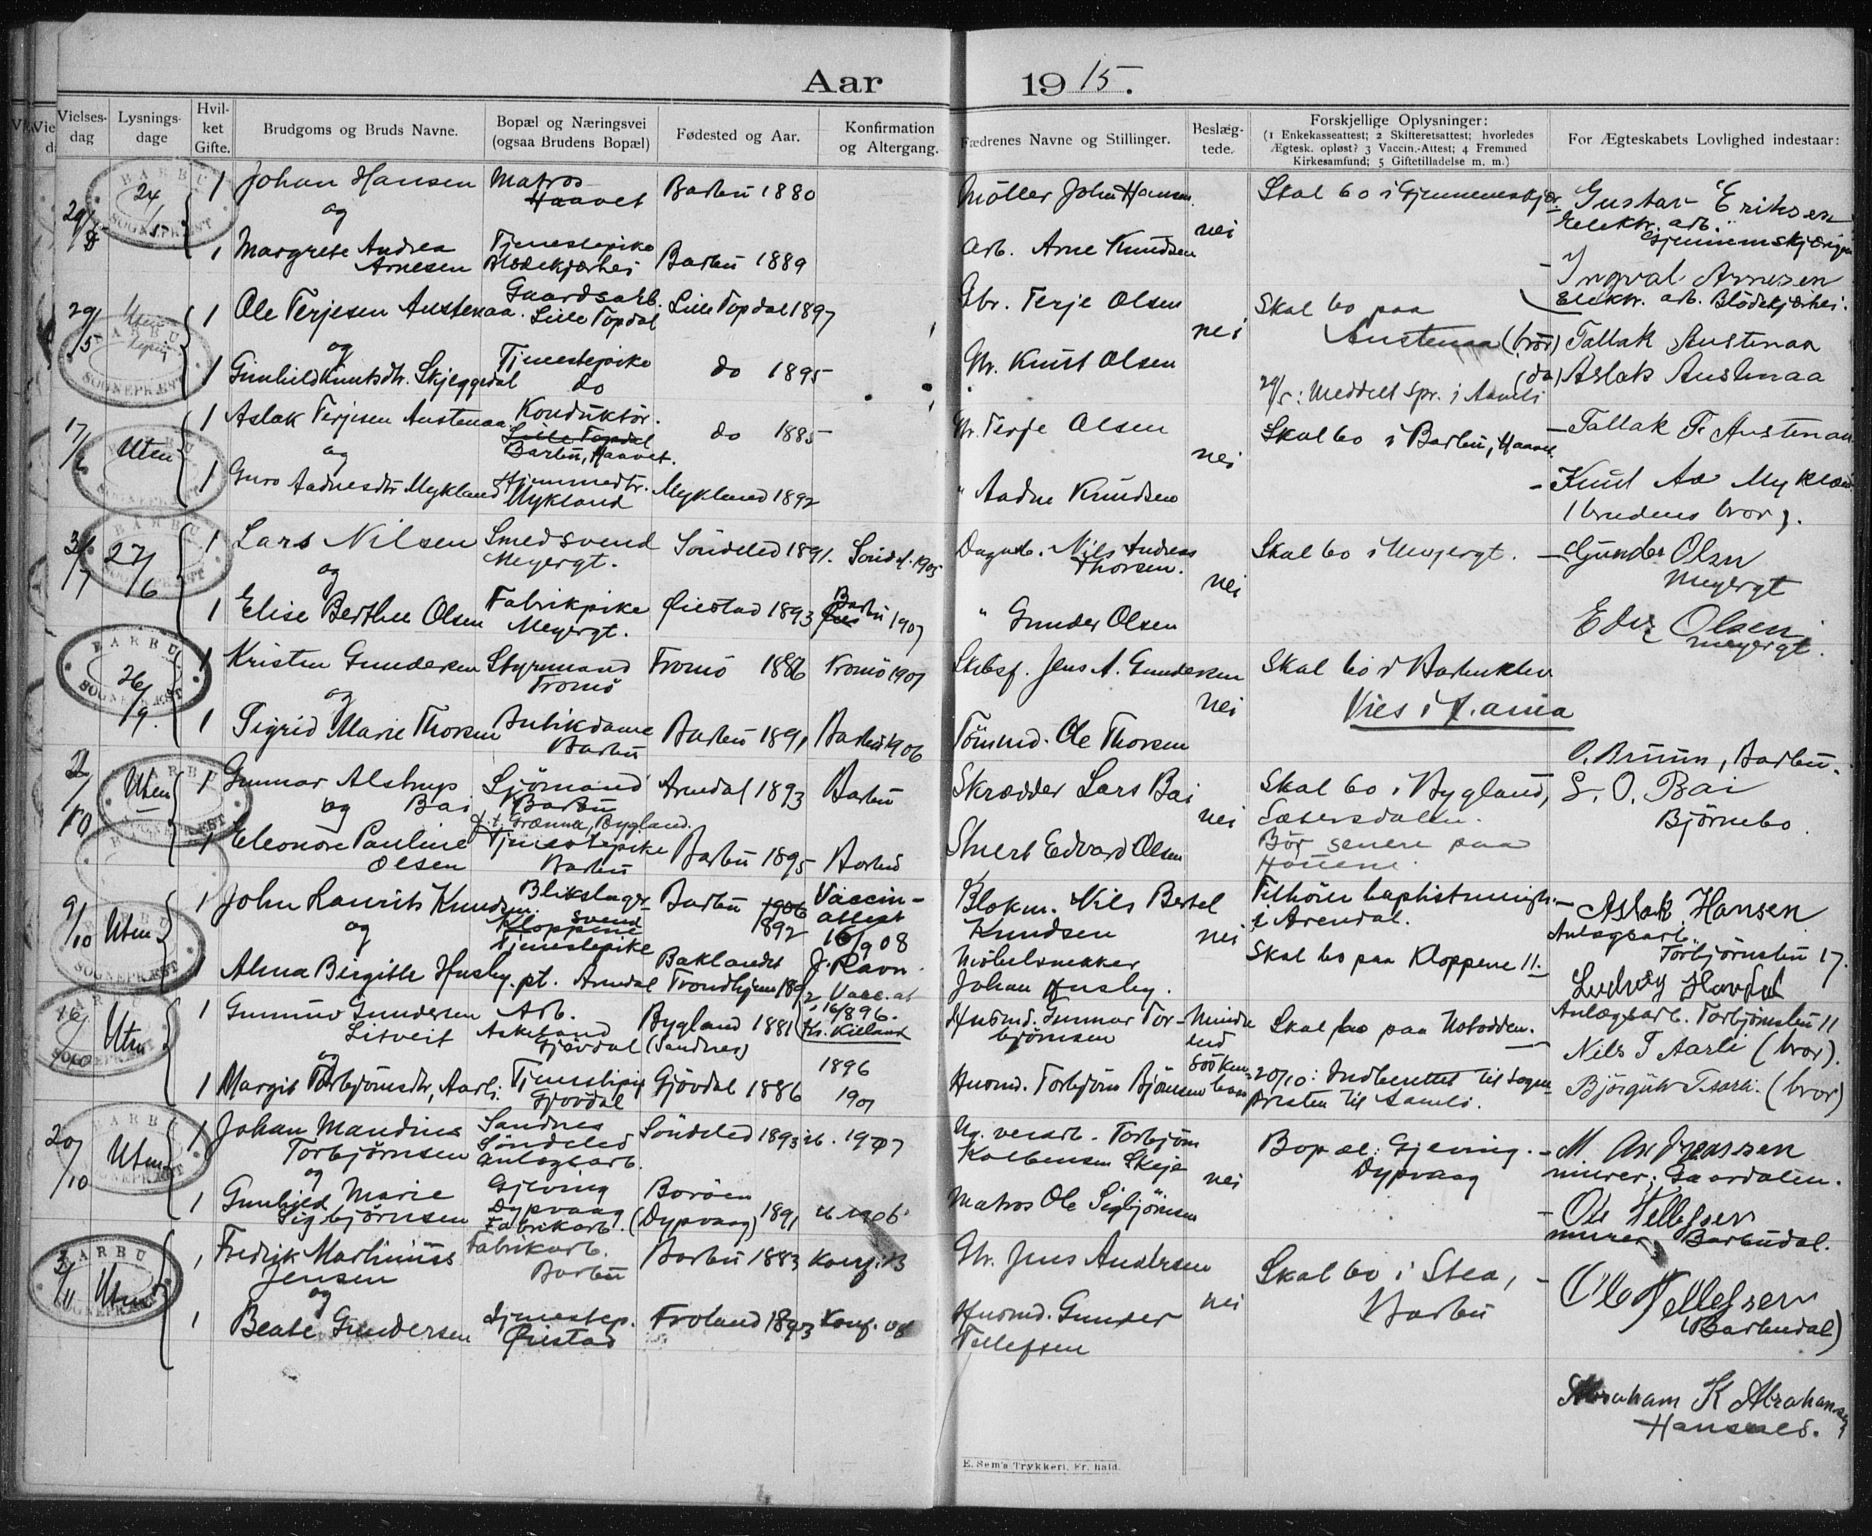 Aar 1915.
Vielses-dag
Lysnings-dage
Hvil-ket Gifte.
Brudgoms og Bruds Navne.
Bopæl og Næringsvei (ogsaa Brudens Bopæl)
Fødested og Aar.
Konfirmation og Altergang.
Fædrenes Navne og Stillinger.
Beslæg-tede.
Forskjellige Oplysninger:
(1 Enkekasseattest; 2 Skifteretsattest; hvorledes Ægtesk. opløst? 3 Vaccin.-Attest; 4 Fremmed Kirkesamfund; 5 Giftetilladelse m. m.)
For Ægteskabets Lovlighed indestaar:
BARBU SOGNEPRÆST
24/1
1 Johan Hansen Matros Haavet Barbu 1880 Møller John Hansen Skal bo i Gjennemskjær. Gustav Eriksen
og nei Elektr. arb. Gjennemskjæringen
1 Margrete Andrea Arnesen Tjenestepike Blødekjærhei Barbu 1889 Arb. Arne Knudsen Ingval Arnesen
Elektr. arb. Blødekjærhei.
29/5 1 Ole Terjesen Austenaa. Gaardsarb. Lille Topdal Lille Topdal 1897 Gbr. Terje Olsen Skal bo paa Austenaa (bror) Tallak Austenaa
og nei
1 Gunhild Knutsdtr. Skjeggedal Tjenestepike do do 1895 Gbr. Knut Olsen (do) Aslak Austenaa
29/5: Meddelt Spr. i Aamli
17/6 Uten 1 Aslak Terjesen Austenaa Konduktør. Lille Topdal Barbu, Haavet. do 1885 Gbr. Terje Olsen Skal bo i Barbu, Haavet Tallak T. Austenaa
og nei
1 Guro Aadnesdtr Mykland Hjemmedtr. Mykland Mykland 1892 " Aadne Knudsen Knut Aa Mykland
(brudens bror).
27/6 1 Lars Nilsen Smedsvend Meyergt. Søndeled 1891. Sønd. 1905 Dagarb. Nils Andreas Thorsen. Skal bo i Meyergt. Gunder Olsen Meyergt
og nei
1 Elise Berthee Olsen Fabrikpike Meyergt. Øiestad 1893 Barbu 1907 " Gunder Olsen Olsen Meyergt.
26/9. 1 Kristen Gundersen Styrmand Tromö Tromö 1886 Tromö 1901 Skibsf. Jens A. Gundersen Skal bo i Barbuklev
og nei Vies i
1 Sigrid Marie Thorsen Butikdame Barbu Barbu 1891 Barbu 1906 Tömmd. Ole Thorsen
O. Bruun, Barbu.
2/10 Uten 1 Gunnar Alstrup Bai Sjömand Barbu Arendal 1893 Barbu Skrædder Lars Bai Skal bo i Bygland, Sætersdalen. L. O. Bai Björnebo.
og p.t. Grænna, Bygland. nei
1 Eleonore Pauline Olsen Tjenestepike Barbu Barbu 1895 Barbu Stuert Edvard Olsen Bör senere paa
9/10 Uten 1 John Laurits Knudsen. Blikslagersvend Kloppene Barbu 1906 1892 Vaccin-attest 16/9 08 Blokm. Nils Bertel Knudsen Tilhører baptistmenigh. i Arendal. Aslak Hansen
og nei Anlægsarb. Torbjørnsbu 17.
1 Alma Birgitte Husby. Tjenestepike pt. Arendal Baklandet Trondhjem J. Ravn. Møbelsnekker Johan Husby. Skal bo paa Kloppene 11. Ludvig Havdal
Anlægsarb. Torbjørnsbu 11
16/10 Uten 1 Gunnuv Gundersen Litveit Arb. Askeland Gjövdal Bygland 1881 (Sandnes) Vacc. at. 16/8 96. Kielland Husmd. Gunnar Torbjörnsen Mindre end Söskenbarn Skal bo paa Notodden. Nils T Aarli (bror).
og 1896
1 Margit Torbjörnsdtr. Aarli. Tjenestepig Gjövdal Gjövdal 1886 1901 Husmd. Torbjörn Björnsen 20/10: Indberettet til Sognepresten til Aamli. Björgulv T Aarli. (bror)
20/10 Uten 1 Johan Mandius Torbjørnsen Sandnes Söndeled anlægsarb. Söndeled 1893 1907 Torbjörn Kolbensen Skeja Bopæl: Gjeving. Dypvaag M. Jenssen
og nei murer; Gaardalen.
1 Gunhild Marie Sigbjørnsen Gjeving Dypvaag Fabrikarb. Boröen (Dypvaag) 1891 1906 Matros Ole Sigbjörnsen Ole Tellefsen
murer Barbudal.
3/11 Uten 1 Fredrik Martinius Jensen Fabrikarb. Barbu Barbu 1883 Konf. Gbr. Jens Andersen Skal bo i Stea, Barbu Ole Tellefsen
og nei (Barbudal)
1 Beate Gundersen Tjenestep. Øiestad Froland 1893 Konf. 08 Husmd. Gunder Tellefsen
Abraham K Abrahamsen
E. Sem's Trykkeri, Fr. hald.